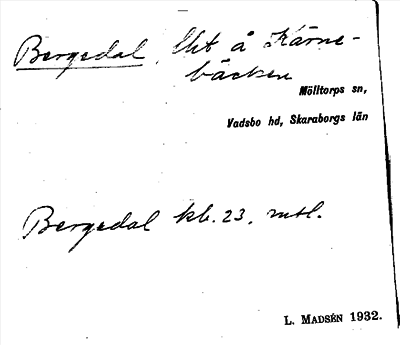 Bergedal, lht å Kärne-
bäcken
Mölltorps sn,
Vadsbo hd, Skaraborgs län
Bergedal kb. 23. mtl.
L. MADSÉN 1932.